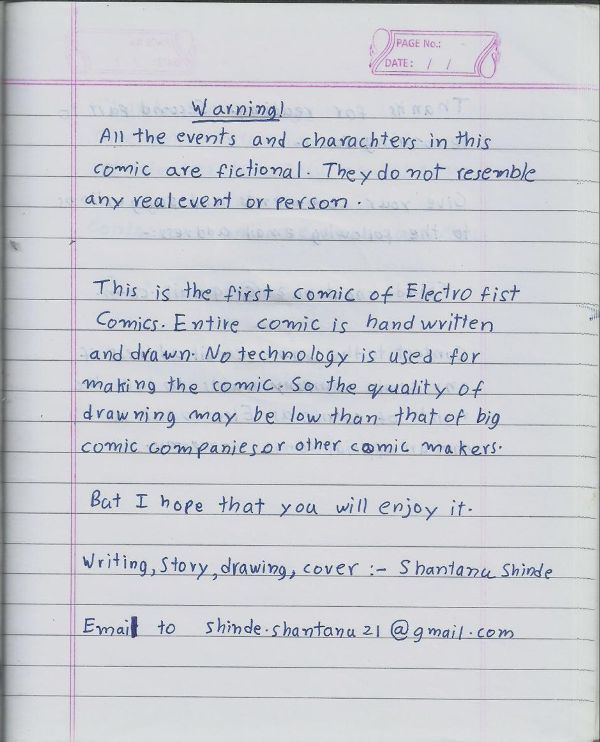 PAGE No.:
DATE: / /
Warning!
All the events and charachters in this
comic are fictional. They do not resemble
any real event or person.
This is the first comic of Electro fist
Comics. Entire comic is hand written
and drawn. No technology is used for
making the comic. So the quality of
drawning may be low than that of big
comic companies or other comic makers.
But I hope that you will enjoy it.
Writing, Story, drawing, cover :- Shantanu Shinde
Email to shinde.shantanu21@gmail.com